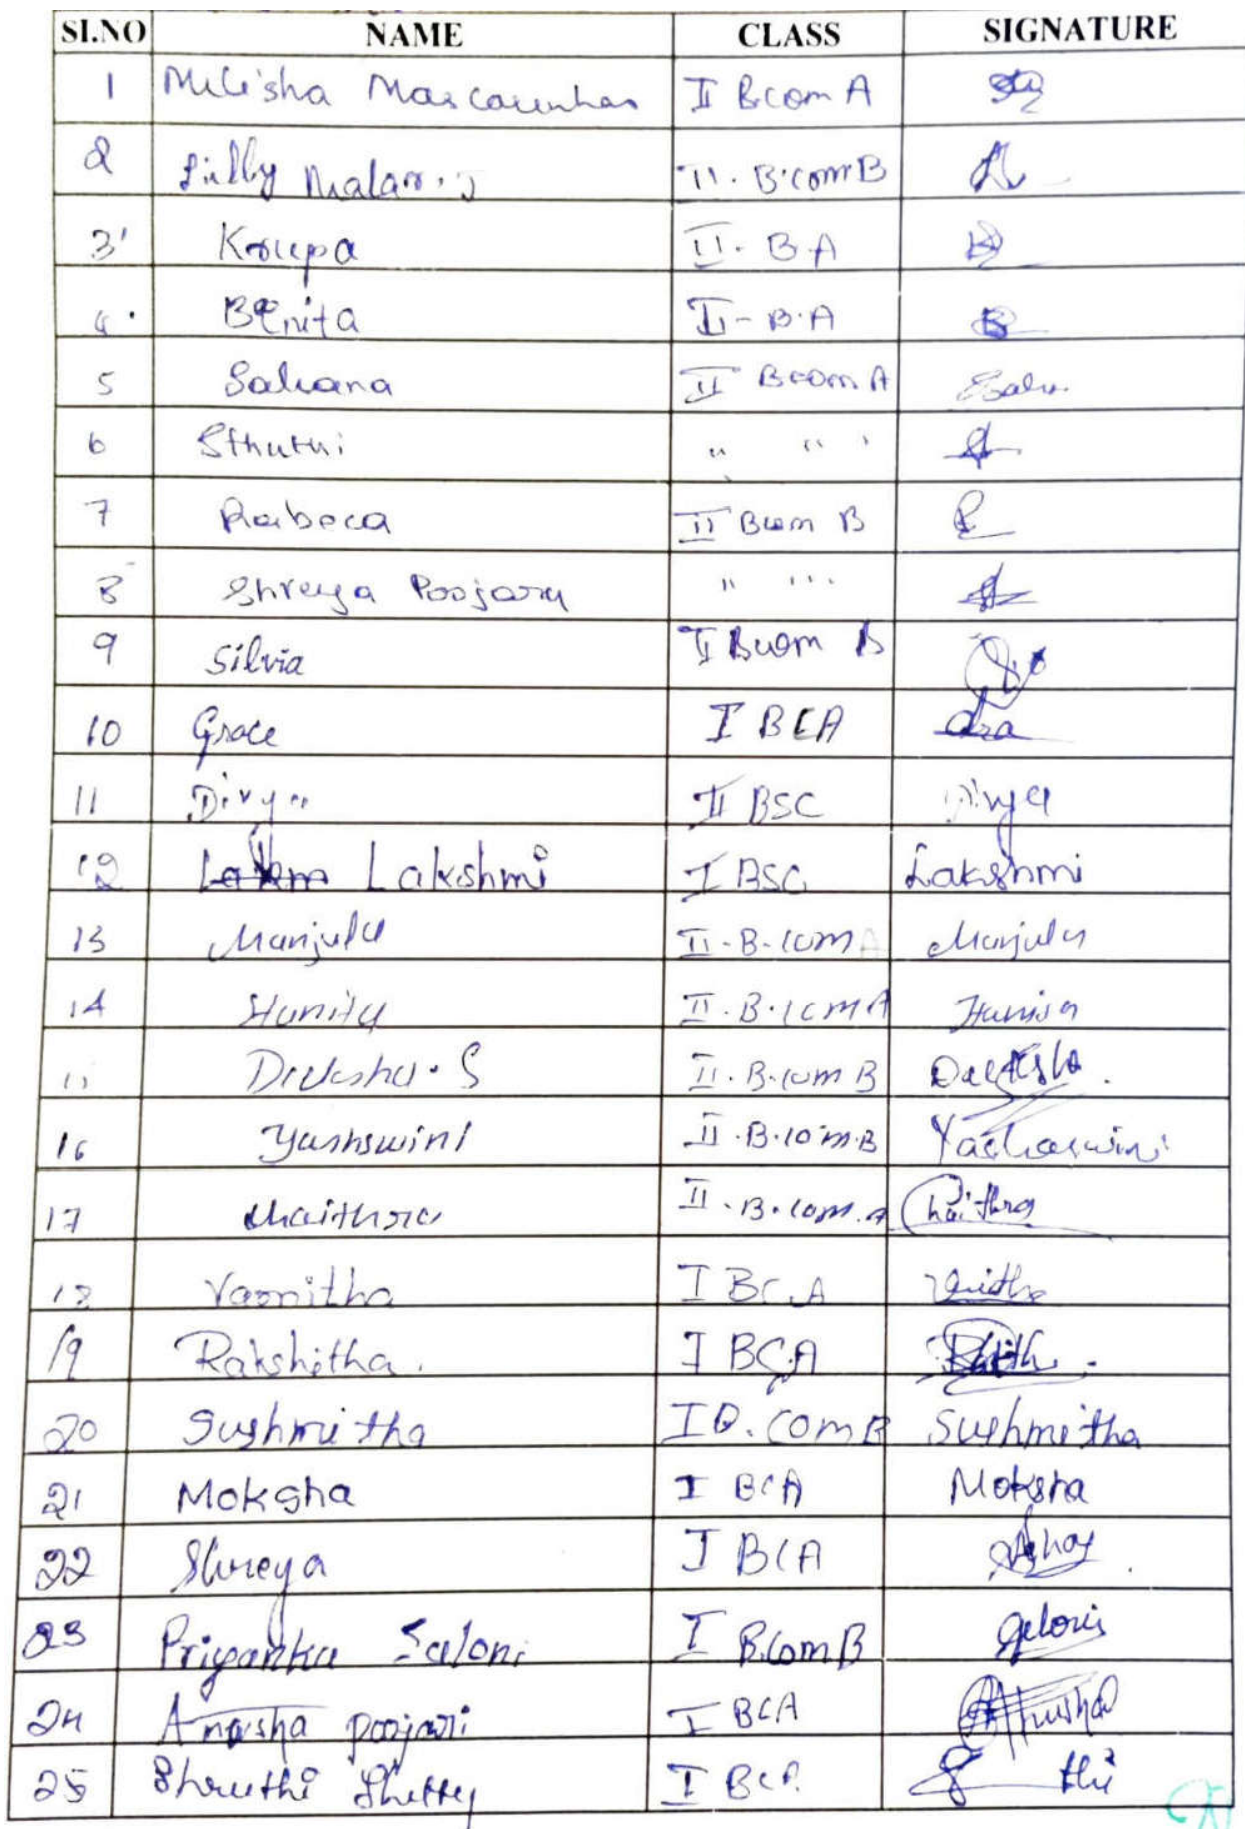 SI.NO NAME CLASS SIGNATURE
1 Melisha Mascarenhas II Bcom A
2 Lilly Malar. J II. B.com B
3' Krupa II. B A
4. Benita II - B.A
5 Sahana II Bcom A Sahn
6 Sthuthi " " '
7 Rabeca II Bcom B
8 Shreya Poojary " "
9 Silvia I Bcom B
10 Grace I BCA Gra
11 Divya II BSC Divya
12 Lakshmi I BSC Lakshmi
13 Manjula II-B-com A Manjula
14 II.B.com A
15 Deeksha. S II.B.com B Deeksha.
16 Yashswini II.B.com.B Yashaswini
17 Chaithra II.B.com.A Chaithra
18 Varnitha I BCA
19 Rakshitha. I BCA
20 Sushmitha I B.com B Sushmitha
21 Moksha I BCA Moksha
22 Shreya I BCA
23 Priyanka Saloni I B.com B
24 Anusha poojari I BCA Anusha
25 Shruthi Shetty I BCA thi